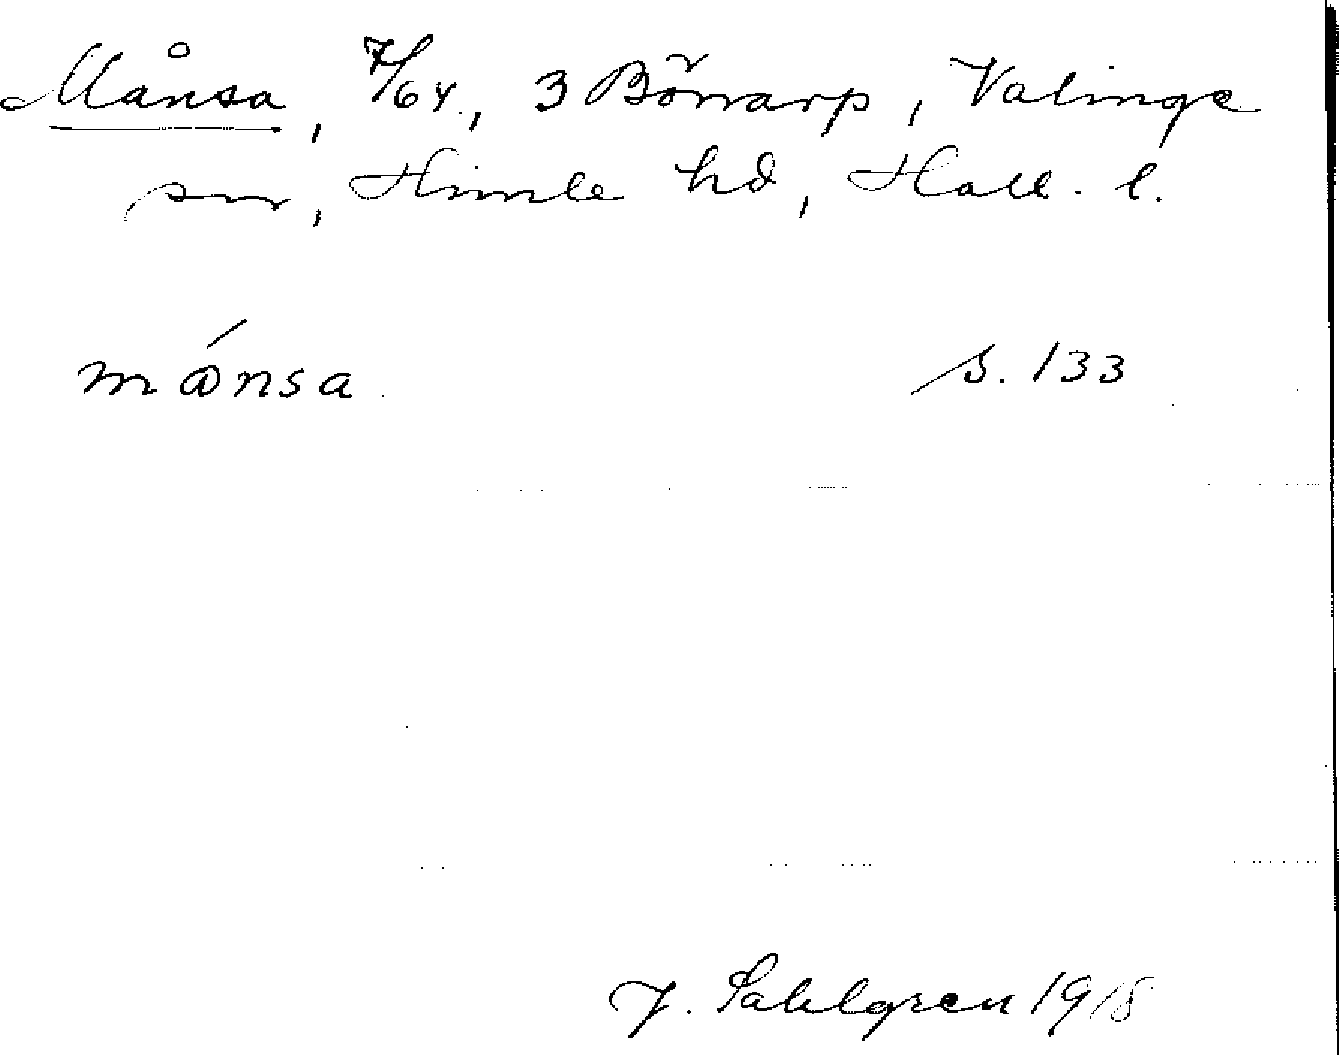 Månsa, 7/64., 3 Börrarp, Valinge
sn, Himle hd, Hall. l.
månsa s. 133
J. Sahlgren 1918